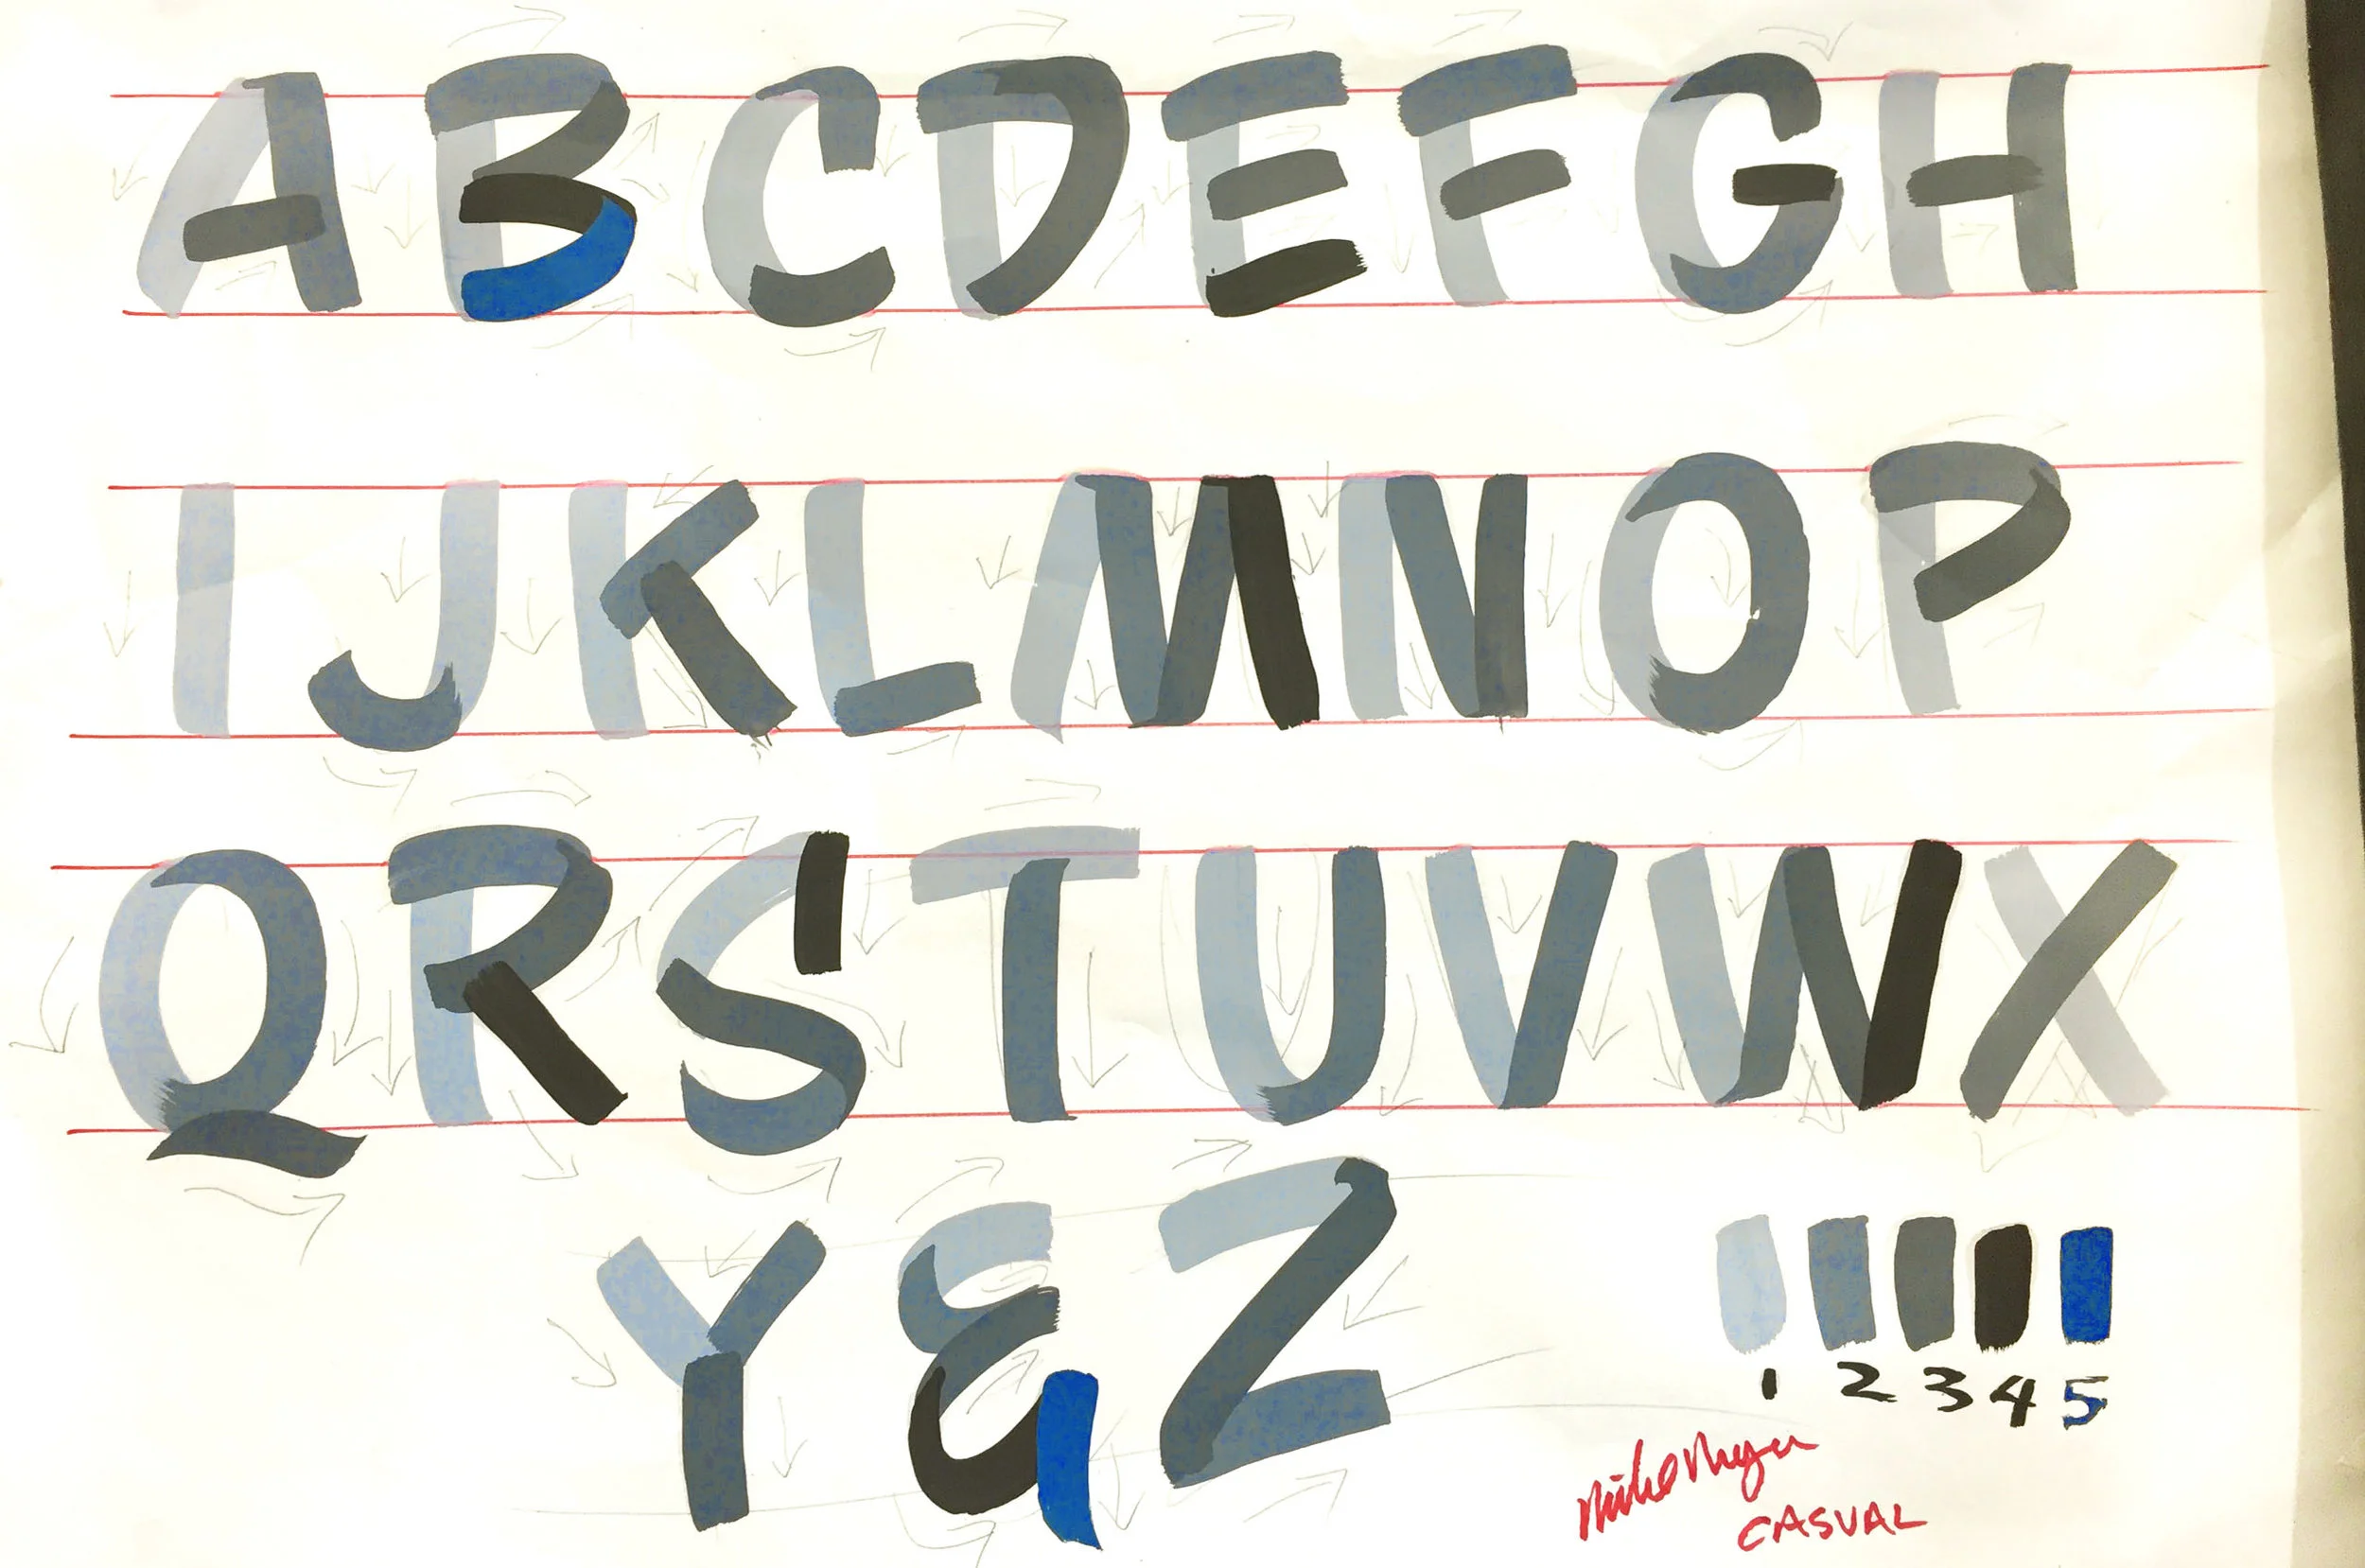 A B C D E F G H
I J K L M N O P
Q R S T U V W X
Y & Z
1 2 3 4 5
Mike Meyer
CASUAL